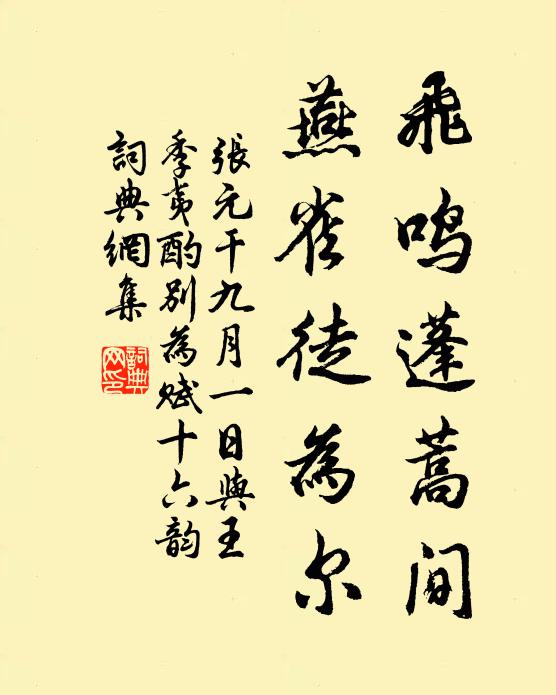 飛鳴蓬蒿间
燕雀徒為尔
張元干九月一日與王
季夷酌别為赋十六韵
詞典網集
詞典
网印